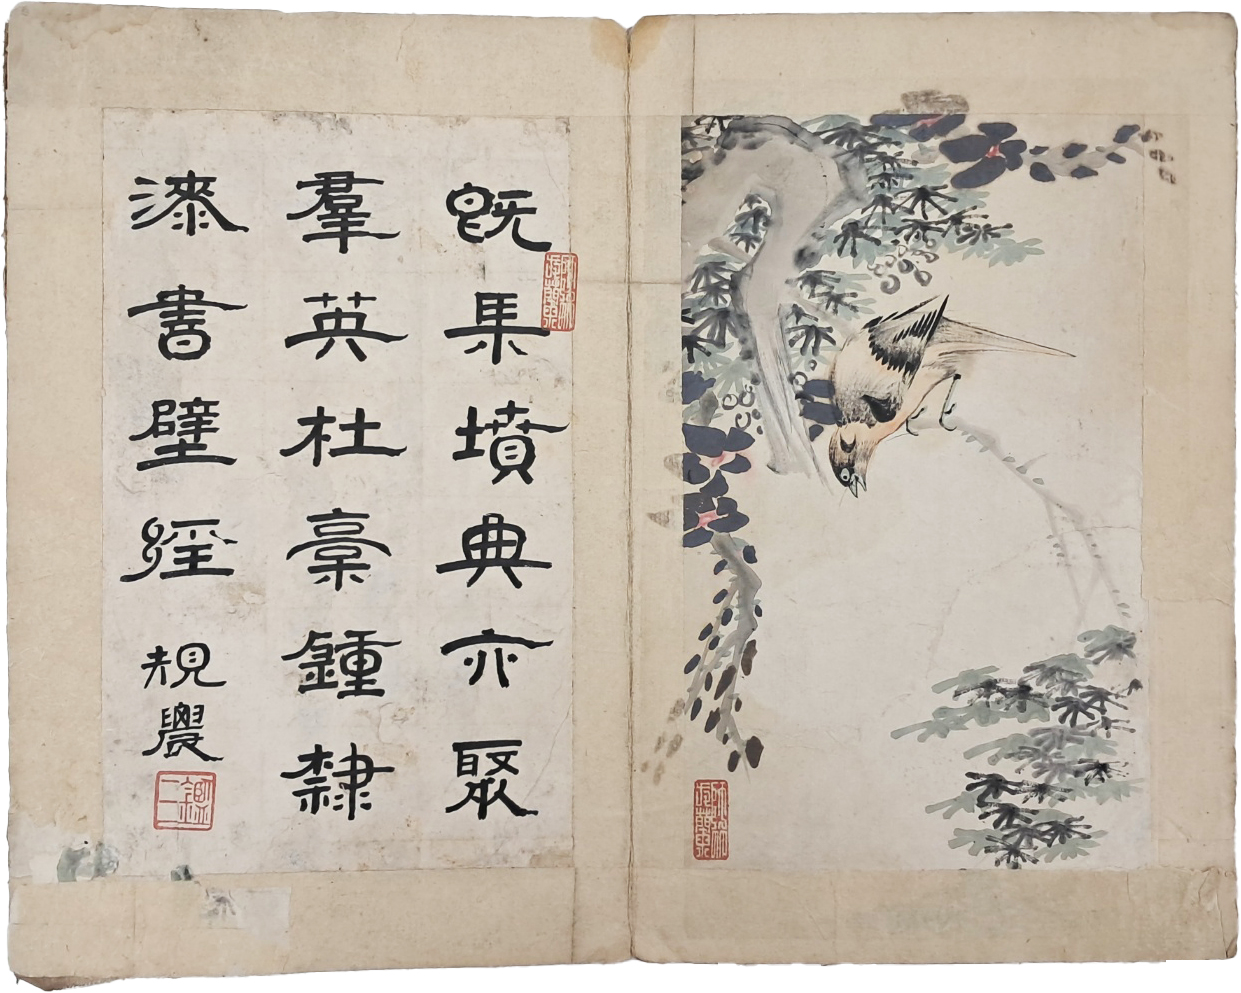 既集墳典亦聚
羣英杜稾鍾隸
漆書壁經
規農